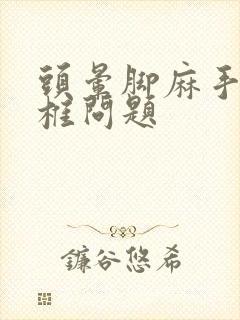 頭暈脚麻手
框問題
鐮谷悠希